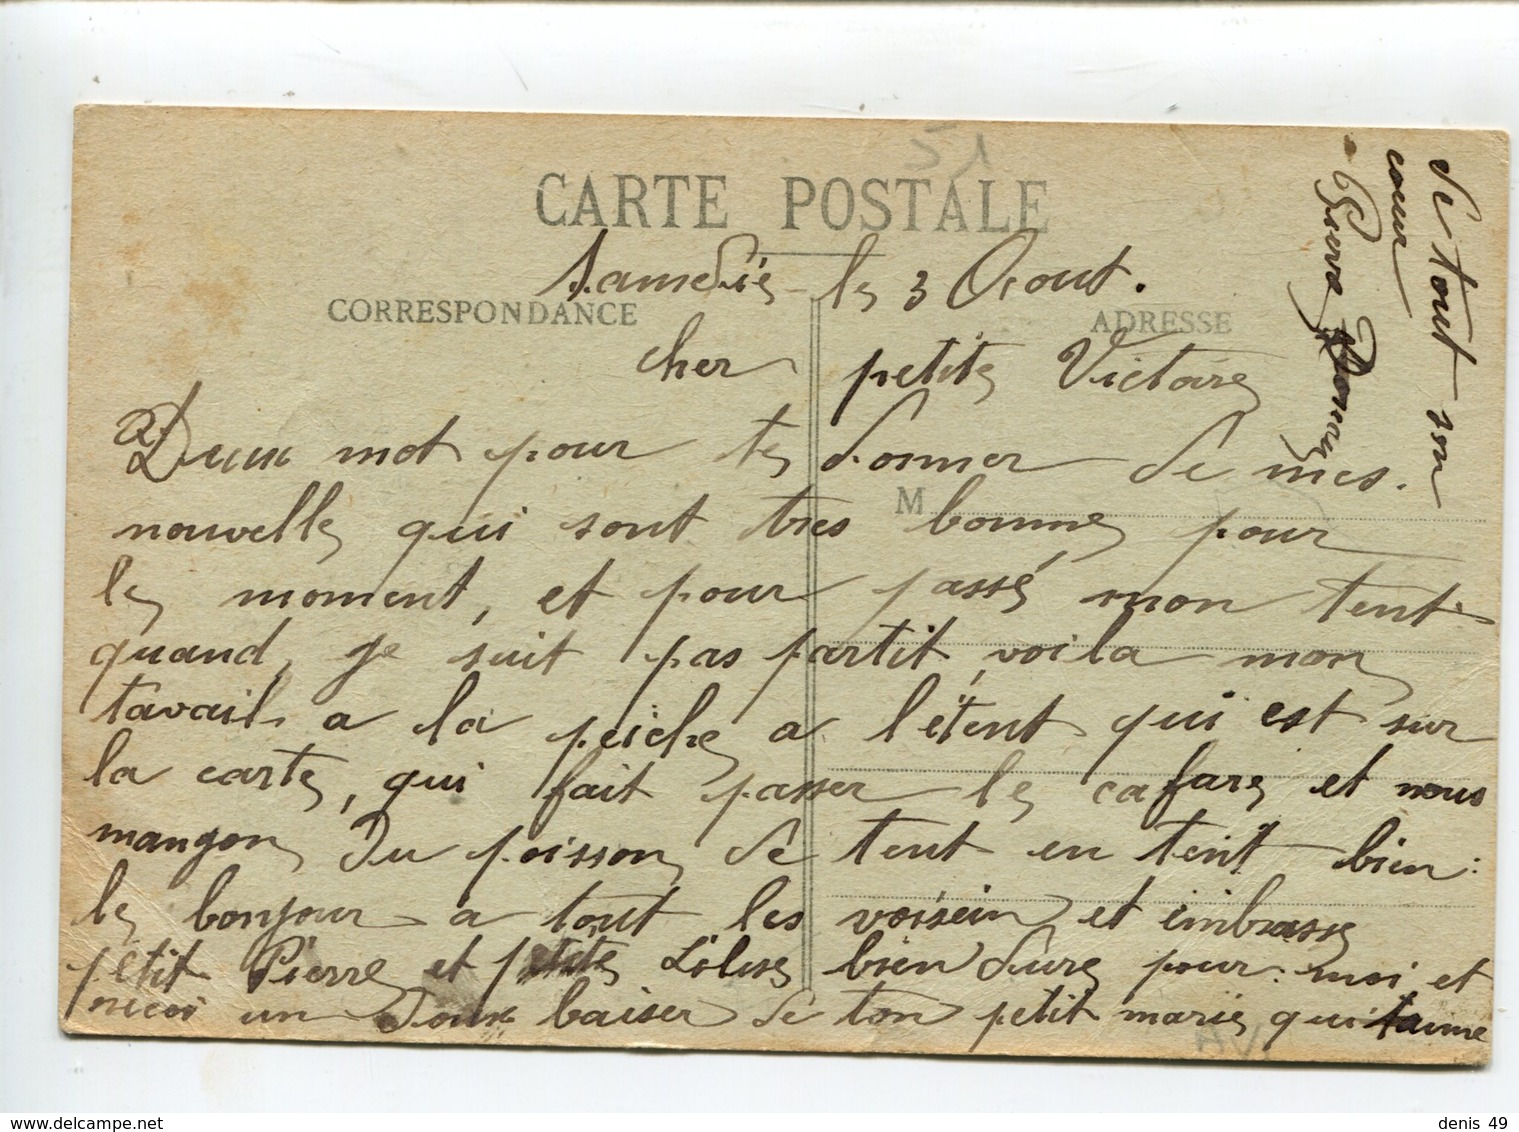 CARTE POSTALE
Samedie le 3 Aout.
CORRESPONDANCE
ADRESSE
cher petite Victoire
Deux mot pour te donner de mes.
M
nouvelle qui sont tres bonne pour
le moment, et pour passé mon tent
quand je suit pas partit, voila mon
tavail a la peiche a l'étent qui est sur
la carte, qui fait passer le cafare et nous
mangon du poisson de tent en tent bien:
le bonjour a tout les voisein et embrasse
petit Pierre et petite bien dure pour: moi et
un doux baiser de ton petit marie qui taime
de tout son
coeur
denis 49